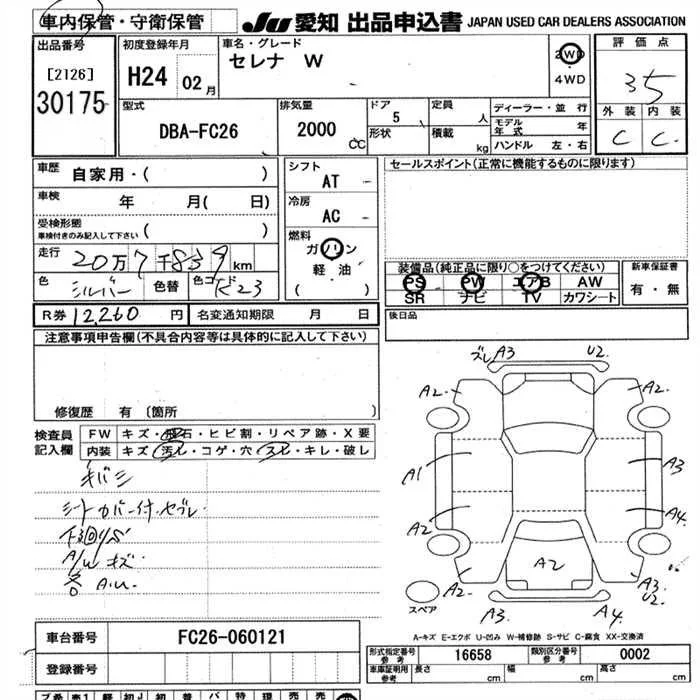 車内保管・守衛保管
JU 愛知 出品申込書 JAPAN USED CAR DEALERS ASSOCIATION
出品番号
[2126]
30175
初度登録年月
H24 02月
車名・グレード
セレナ W
2WD
4WD
評価点
3.5
外装 内装
C C
型式
DBA-FC26
排気量
2000
CC
ドア
5
形状
定員
人
積載
kg
ディーラー・並行
モデル年式 年
ハンドル 左・右
車歴
自家用・( )
車検
年 月( 日)
受検形態
車検付きのみ記入して下さい ( )
走行
20万7千839km
色
シルバー
色替
色コード
K23
シフト
AT
冷房
AC
燃料
ガソリン
軽油
( )
セールスポイント(正常に機能するものに限ります)
装備品(純正品に限り○をつけてください)
PS PW エアB AW
SR ナビ TV カワシート
新車保証書
有・無
R券 12,260 円
名変通知期限 月 日
後日品
注意事項申告欄(不具合内容等は具体的に記入して下さい)
修復歴 有〔箇所 〕
検査員記入欄
FW キズ・飛石・ヒビ割・リペア跡・X要
内装 キズ・汚れ・コゲ・穴・スレ・キレ・破レ
キバミ
シートカバー付.セブレ
下廻りS
A/W キズ
各 A.U.
ズレ A3 U2
A2 A2
A1 A3
A2 A4
A2
A2 A3
U2
スペア
A3 A4
A-キズ E-エクボ U-凹み W-補修跡 S-サビ C-腐食 XX-交換済
車台番号
FC26-060121
登録番号
形式指定番号 参考
16658
類別区分番号 参考
0002
車庫証明用 参考
長さ cm
幅 cm
高さ cm